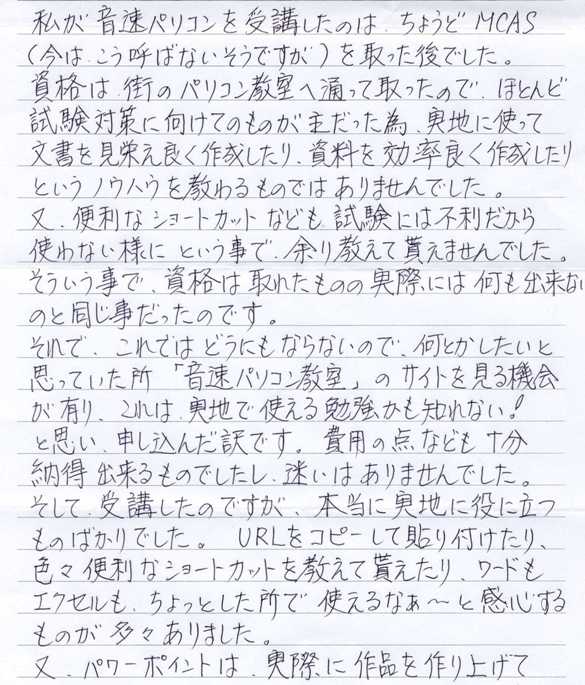 私が音速パソコンを受講したのは、ちょうどMCAS
(今は、こう呼ばないそうですが)を取った後でした。
資格は、街のパソコン教室へ通って取ったので、ほとんど
試験対策に向けてのものが主だった為、実地に使って
文書を見栄え良く作成したり、資料を効率良く作成したり
というノウハウを教わるものではありませんでした。
又、便利なショートカットなども、試験には不利だから
使わない様にという事で、余り教えて貰えませんでした。
そういう事で、資格は取れたものの実際には何も出来ない
のと同じ事だったのです。
それで、これではどうにもならないので、何とかしたいと
思っていた所「音速パソコン教室」のサイトを見る機会
が有り、これは、実地で使える勉強かも知れない!
と思い、申し込んだ訳です。費用の点なども十分
納得出来るものでしたし、迷いはありませんでした。
そして、受講したのですが、本当に実地に役に立つ
ものばかりでした。URLをコピーして貼り付けたり、
色々便利なショートカットを教えて貰えたり、ワードも
エクセルも、ちょっとした所で使えるなぁ〜と感心する
ものが多々ありました。
又、パワーポイントは、実際に作品を作り上げて